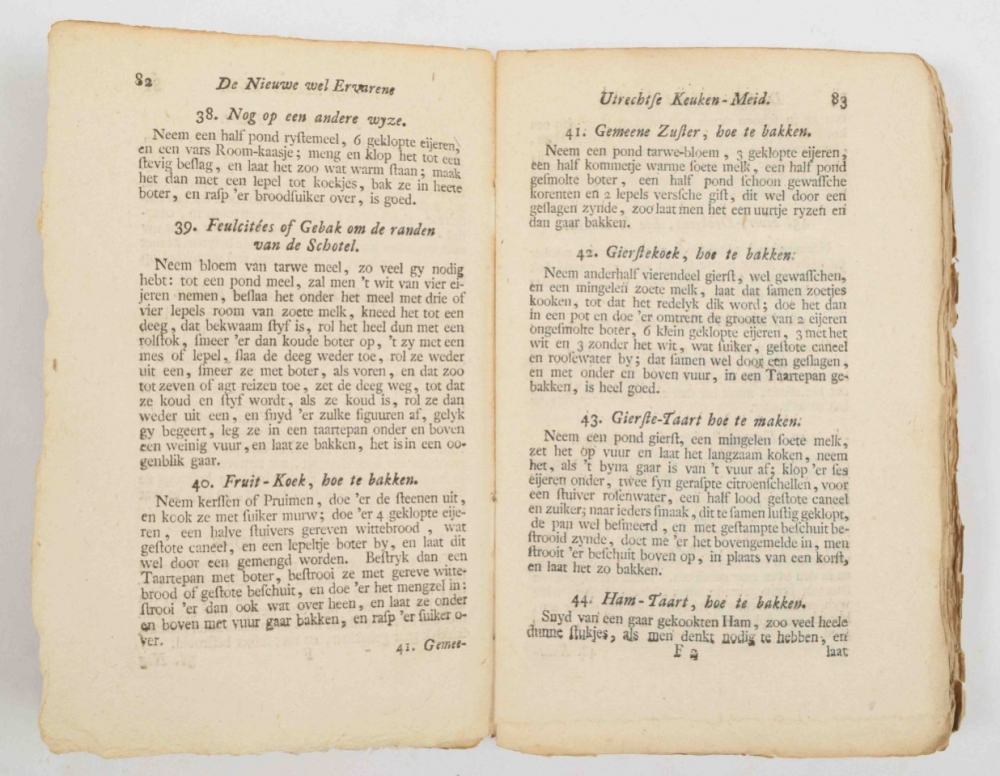 82 De Nieuwe wel Ervarene
38. Nog op een andere wyze.
Neem een half pond ryſtemeel, 6 geklopte eijeren,
en een vars Room-kaasje; meng en klop het tot een
ſtevig beſlag, en laat het zoo wat warm ſtaan; maak
het dan met een lepel tot koekjes, bak ze in heete
boter, en raſp 'er broodſuiker over, is goed.
39. Feulcitées of Gebak om de randen
van de Schotel.
Neem bloem van tarwe meel, zo veel gy nodig
hebt: tot een pond meel, zal men 't wit van vier ei-
jeren nemen, beſlaa het onder het meel met drie of
vier lepels room van zoete melk, kneed het tot een
deeg, dat bekwaam ſtyf is, rol het heel dun met een
rolſtok, ſmeer 'er dan koude boter op, 't zy met een
mes of lepel, ſlaa de deeg weder toe, rol ze weder
uit een, ſmeer ze met boter, als voren, en dat zoo
tot zeven of agt reizen toe, zet de deeg weg, tot dat
ze koud en ſtyf wordt, als ze koud is, rol ze dan
weder uit een, en ſnyd 'er zulke figuuren af, gelyk
gy begeert, leg ze in een taartepan onder en boven
een weinig vuur, en laat ze bakken, het is in een oo-
genblik gaar.
40. Fruit-Koek, hoe te bakken.
Neem kerſſen of Pruimen, doe 'er de ſteenen uit,
en kook ze met ſuiker murw; doe 'er 4 geklopte eije-
ren, een halve ſtuivers gereven wittebrood, wat
geſtote caneel, en een lepeltje boter by, en laat dit
wel door een gemengd worden. Beſtryk dan een
Taartepan met boter, beſtrooi ze met gereve witte-
brood of geſtote beſchuit, en doe 'er het mengzel in:
ſtrooi 'er dan ook wat over heen, en laat ze onder
en boven met vuur gaar bakken, en raſp 'er ſuiker o-
ver.
41. Gemee-
Utrechtſe Keuken-Meid. 83
41. Gemeene Zuſter, hoe te bakken.
Neem een pond tarwe-bloem, 3 geklopte eijeren,
een half kommetje warme ſoete melk, een half pond
geſmolte boter, een half pond ſchoon gewaſſche
korenten en 2 lepels verſche giſt, dit wel door een
geſlagen zynde, zoo laat men het een uurtje ryzen en
dan gaar bakken.
42. Gierſtekoek, hoe te bakken.
Neem anderhalf vierendeel gierſt, wel gewaſſchen,
en een mingelen zoete melk, laat dat ſamen zoetjes
kooken, tot dat het redelyk dik word; doe het dan
in een pot en doe 'er omtrent de grootte van 2 eijeren
ongeſmolte boter, 6 klein geklopte eijeren, 3 met het
wit en 3 zonder het wit, wat ſuiker, geſtote caneel
en rooſewater by; dat ſamen wel door een geſlagen,
en met onder en boven vuur, in een Taartepan ge-
bakken, is heel goed.
43. Gierſte-Taart hoe te maken.
Neem een pond gierſt, een mingelen ſoete melk,
zet het op vuur en laat het langzaam koken, neem
het, als 't byna gaar is van 't vuur af; klop 'er ſes
eijeren onder, twee fyn geraſpte citroenſchellen, voor
een ſtuiver roſenwater, een half lood geſtote caneel
en zuiker; naar ieders ſmaak, dit te ſamen luſtig geklopt,
de pan wel beſmeerd, en met geſtampte beſchuit be-
ſtrooid zynde, doet me 'er het bovengemelde in, men
ſtrooit 'er beſchuit boven op, in plaats van een korſt,
en laat het zo bakken.
44. Ham-Taart, hoe te bakken.
Snyd van een gaar gekookten Ham, zoo veel heele
dunne ſtukjes, als men denkt nodig te hebben, en
F 2 laat